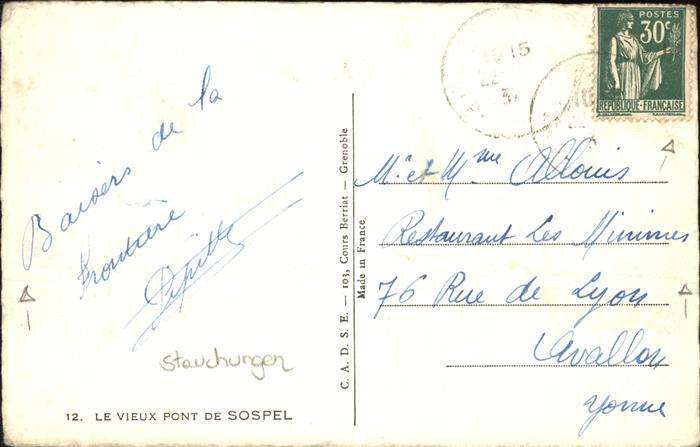 Baisers de la
frontière
12. LE VIEUX PONT DE SOSPEL
Stauchungen
C. A. D. S. E. — 103, Cours Berriat — Grenoble
Made in France
POSTES
30c
RÉPUBLIQUE-FRANÇAISE
15
Mr. et Mme Allouis
Restaurant Les Minimes
76 Rue de Lyon
Avallon
Yonne